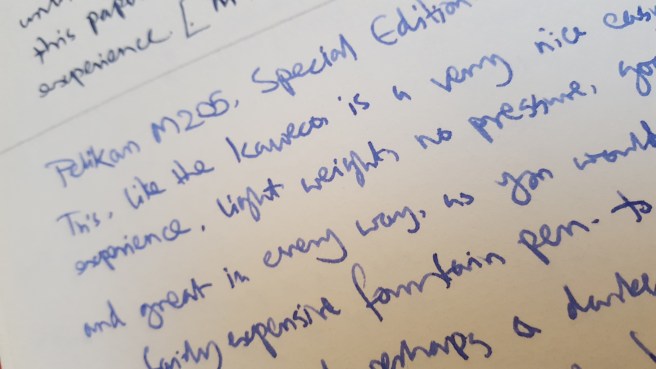 this pape
experience. [
Pelikan M205, Special Edition
This, like the Kaweco, is a very nice
experience, light weight, no pressure,
and great in every way, as you would
fairly expensive fountain pen. to
perhaps a darke